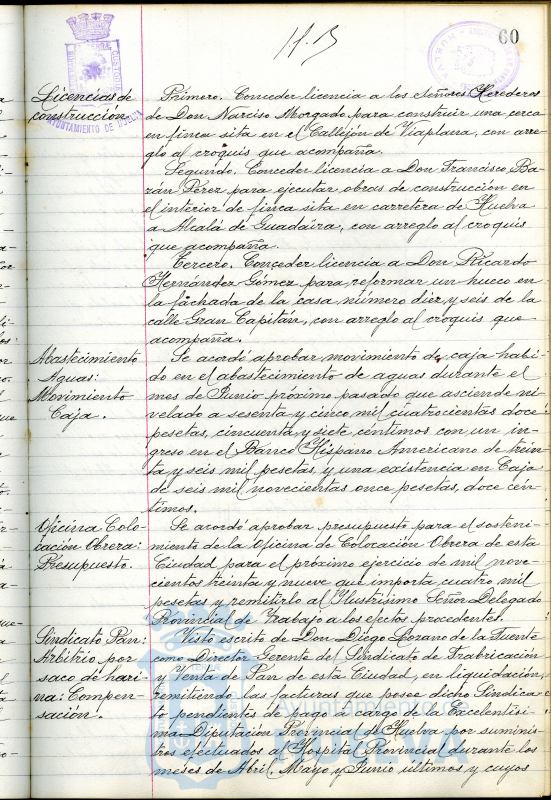 60
Licencias de
construccion.
AYUNTAMIENTO DE HUELVA
Primero. Conceder licencia a los Señores Herederos
de Don Narciso Morgado para construir una cerca
en finca sita en el Callejón de Viaplana, con arre-
glo al croquis que acompaña.
Segundo. Conceder licencia a Don Francisco Ba-
zán Pérez para ejecutar obras de construcción en
el interior de finca sita en carretera de Huelva
a Alcalá de Guadaira, con arreglo al croquis
que acompaña.
Tercero. Conceder licencia a Don Ricardo
Hernández Gómez para reformar un hueco en
la fachada de la casa, número diez y seis de la
calle Gran Capitán, con arreglo al croquis que
acompaña.
Abastecimiento
Aguas:
Movimiento
Caja.
Se acordó aprobar movimiento de caja habi-
do en el abastecimiento de aguas durante el
mes de Junio próximo pasado que asciende ni-
velado a sesenta y cinco mil cuatrocientas doce
pesetas, cincuenta y siete céntimos con un in-
greso en el Banco Hispano Americano de trein-
ta y seis mil pesetas, y una existencia en Caja
de seis mil novecientas once pesetas, doce cén-
timos.
Oficina Colo-
cación Obrera:
Presupuesto.
Se acordó aprobar presupuesto para el sosteni-
miento de la Oficina de Colocación Obrera de esta
Ciudad para el próximo ejercicio de mil nove-
cientos treinta y nueve que importa cuatro mil
pesetas y remitirlo al Ilustrísimo Señor Delegado
Provincial de Trabajo a los efectos procedentes.
Sindicato Pan:
Arbitrio por
saco de hari-
na: Compen-
sación.
Visto escrito de Don Diego Lozano de la Fuente
como Director Gerente del Sindicato de Fabricación
y Venta de Pan de esta Ciudad, en liquidación,
remitiendo las facturas que posee dicho Sindica-
to pendientes de pago a cargo de la Excelentísi-
ma Diputación Provincial de Huelva por suminis-
tros efectuados al Hospital Provincial durante los
meses de Abril, Mayo y Junio últimos y cuyos
Ayuntamiento de
HUELVA